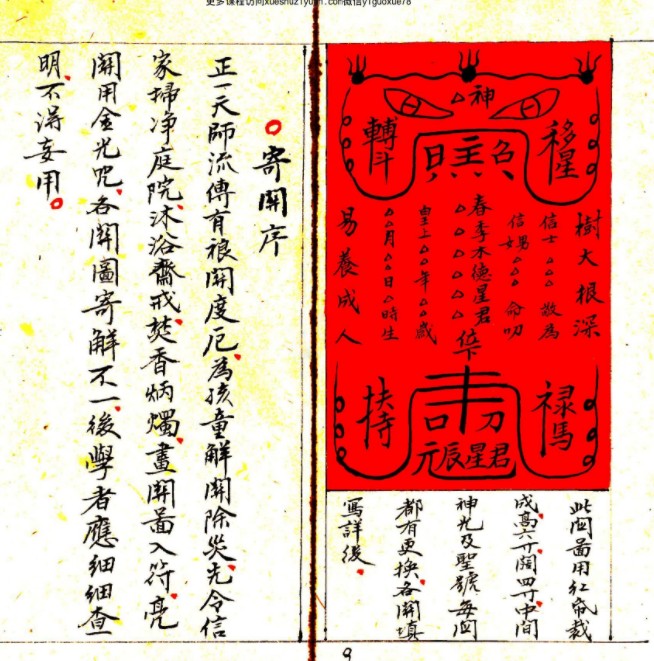 更多课程访问xueshuziyuan.com微信yiguoxue78
△神
移星
轉斗
樹大根深
信士△△△敬為
信男女△△△命叨
春季木德星君△△△△△位下
皇上△△年△△歲
△△月△△日△時生
易養成人
禄馬
扶持
元辰星君
此関圖用紅紙裁
成高六寸闊四寸中間
神光及聖號每関
都有更换各関填
寫詳後
寄関序
正一天師流傳有禳関度厄為孩童解関除災先令信
家掃净庭院沐浴齋戒焚香炳燭畫関圖入符亮
関用金光咒各関圖寄解不一後學者應细细查
明不淂妄用
9